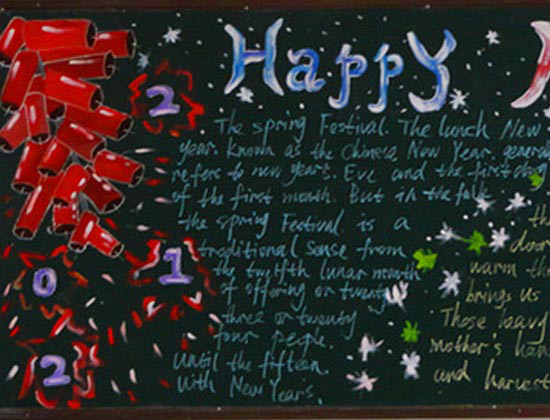 Happy
2
The spring Festival. The lunch New
year. Known as the Chinese New Year. general
refers to new year's. Eve and the first day
of the first month. But in the folk
the spring Festival is a
traditional sense from
the twelfth lunar month
of offering or twenty
three or twenty
four people.
until the fifteen.
With New Year's.
0
1
2
th
door
warm th
brings us
Those heavy
mother's han
and harvest